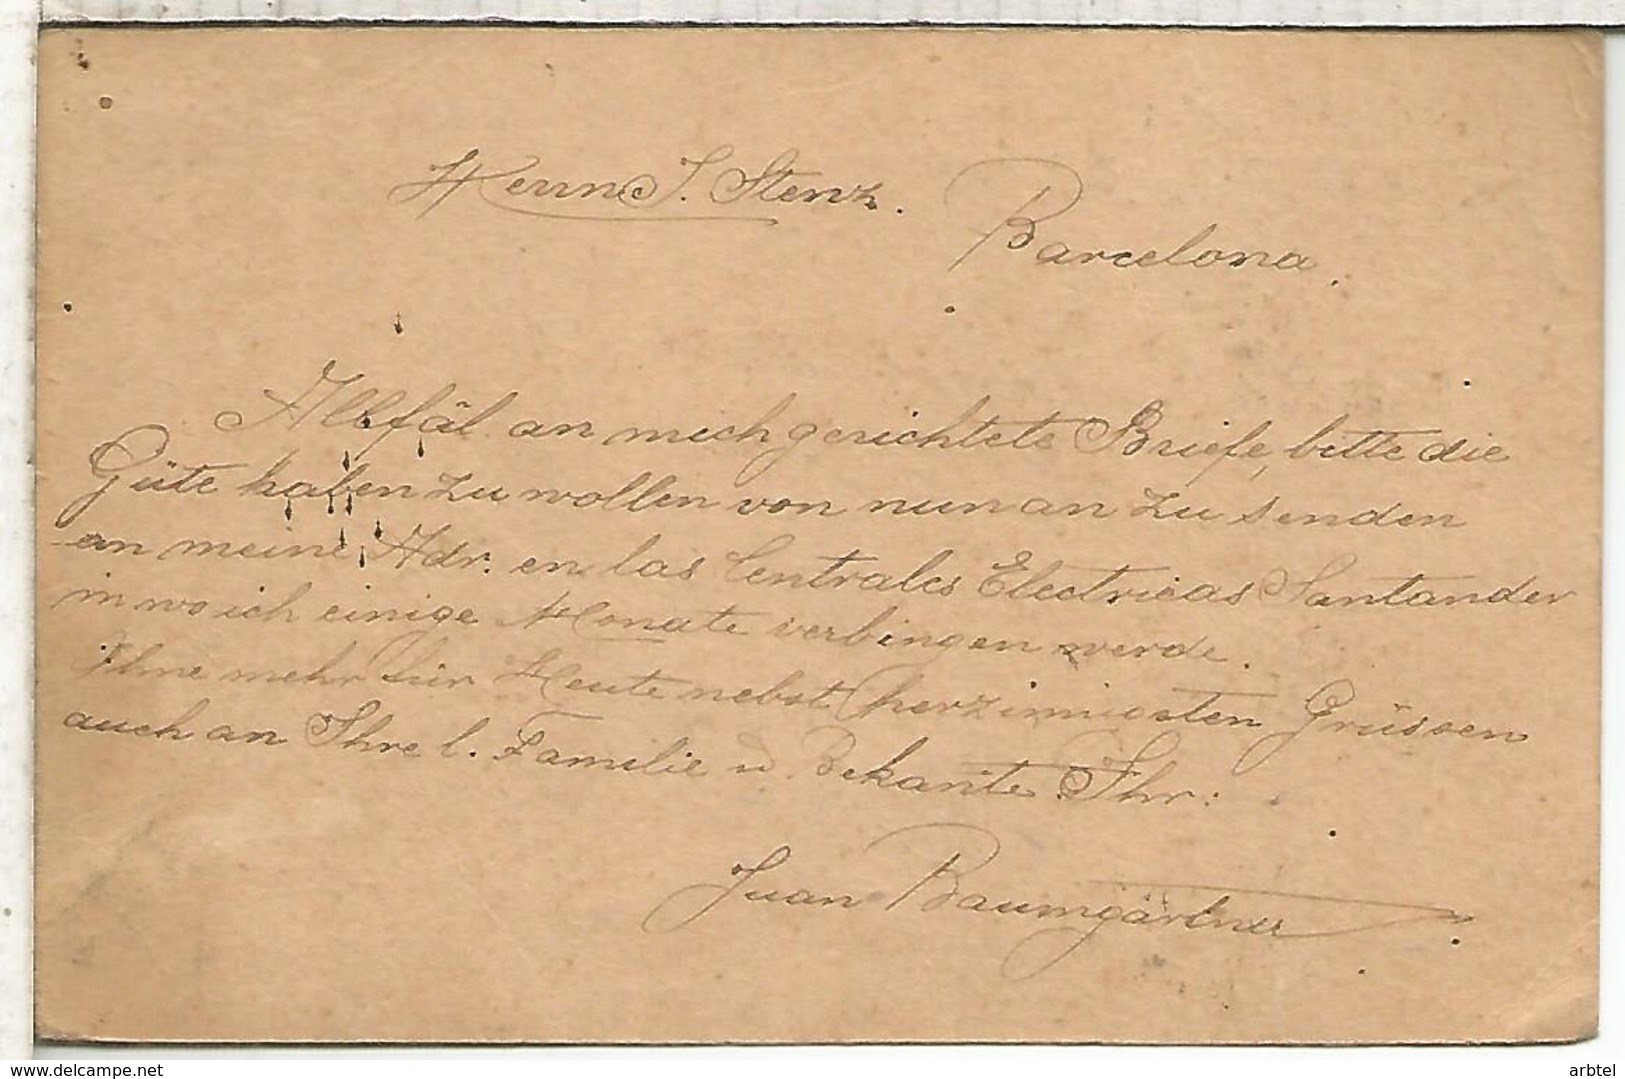 Herrn J. Stenz.
Barcelona.
Allfäl. an mich gerichtete Briefe, bitte die
Güte haben zu wollen von nun an zu senden
an meine Adr. en las Centrales Electricas Santander
in wo ich einige Monate verbingen werde.
Ohne mehr für Heute nebst herzinnigsten Grüssen
auch an Ihre l. Familie u Bekante Ihr:
Juan Baumgärtner
www.delcampe.net
arbtel